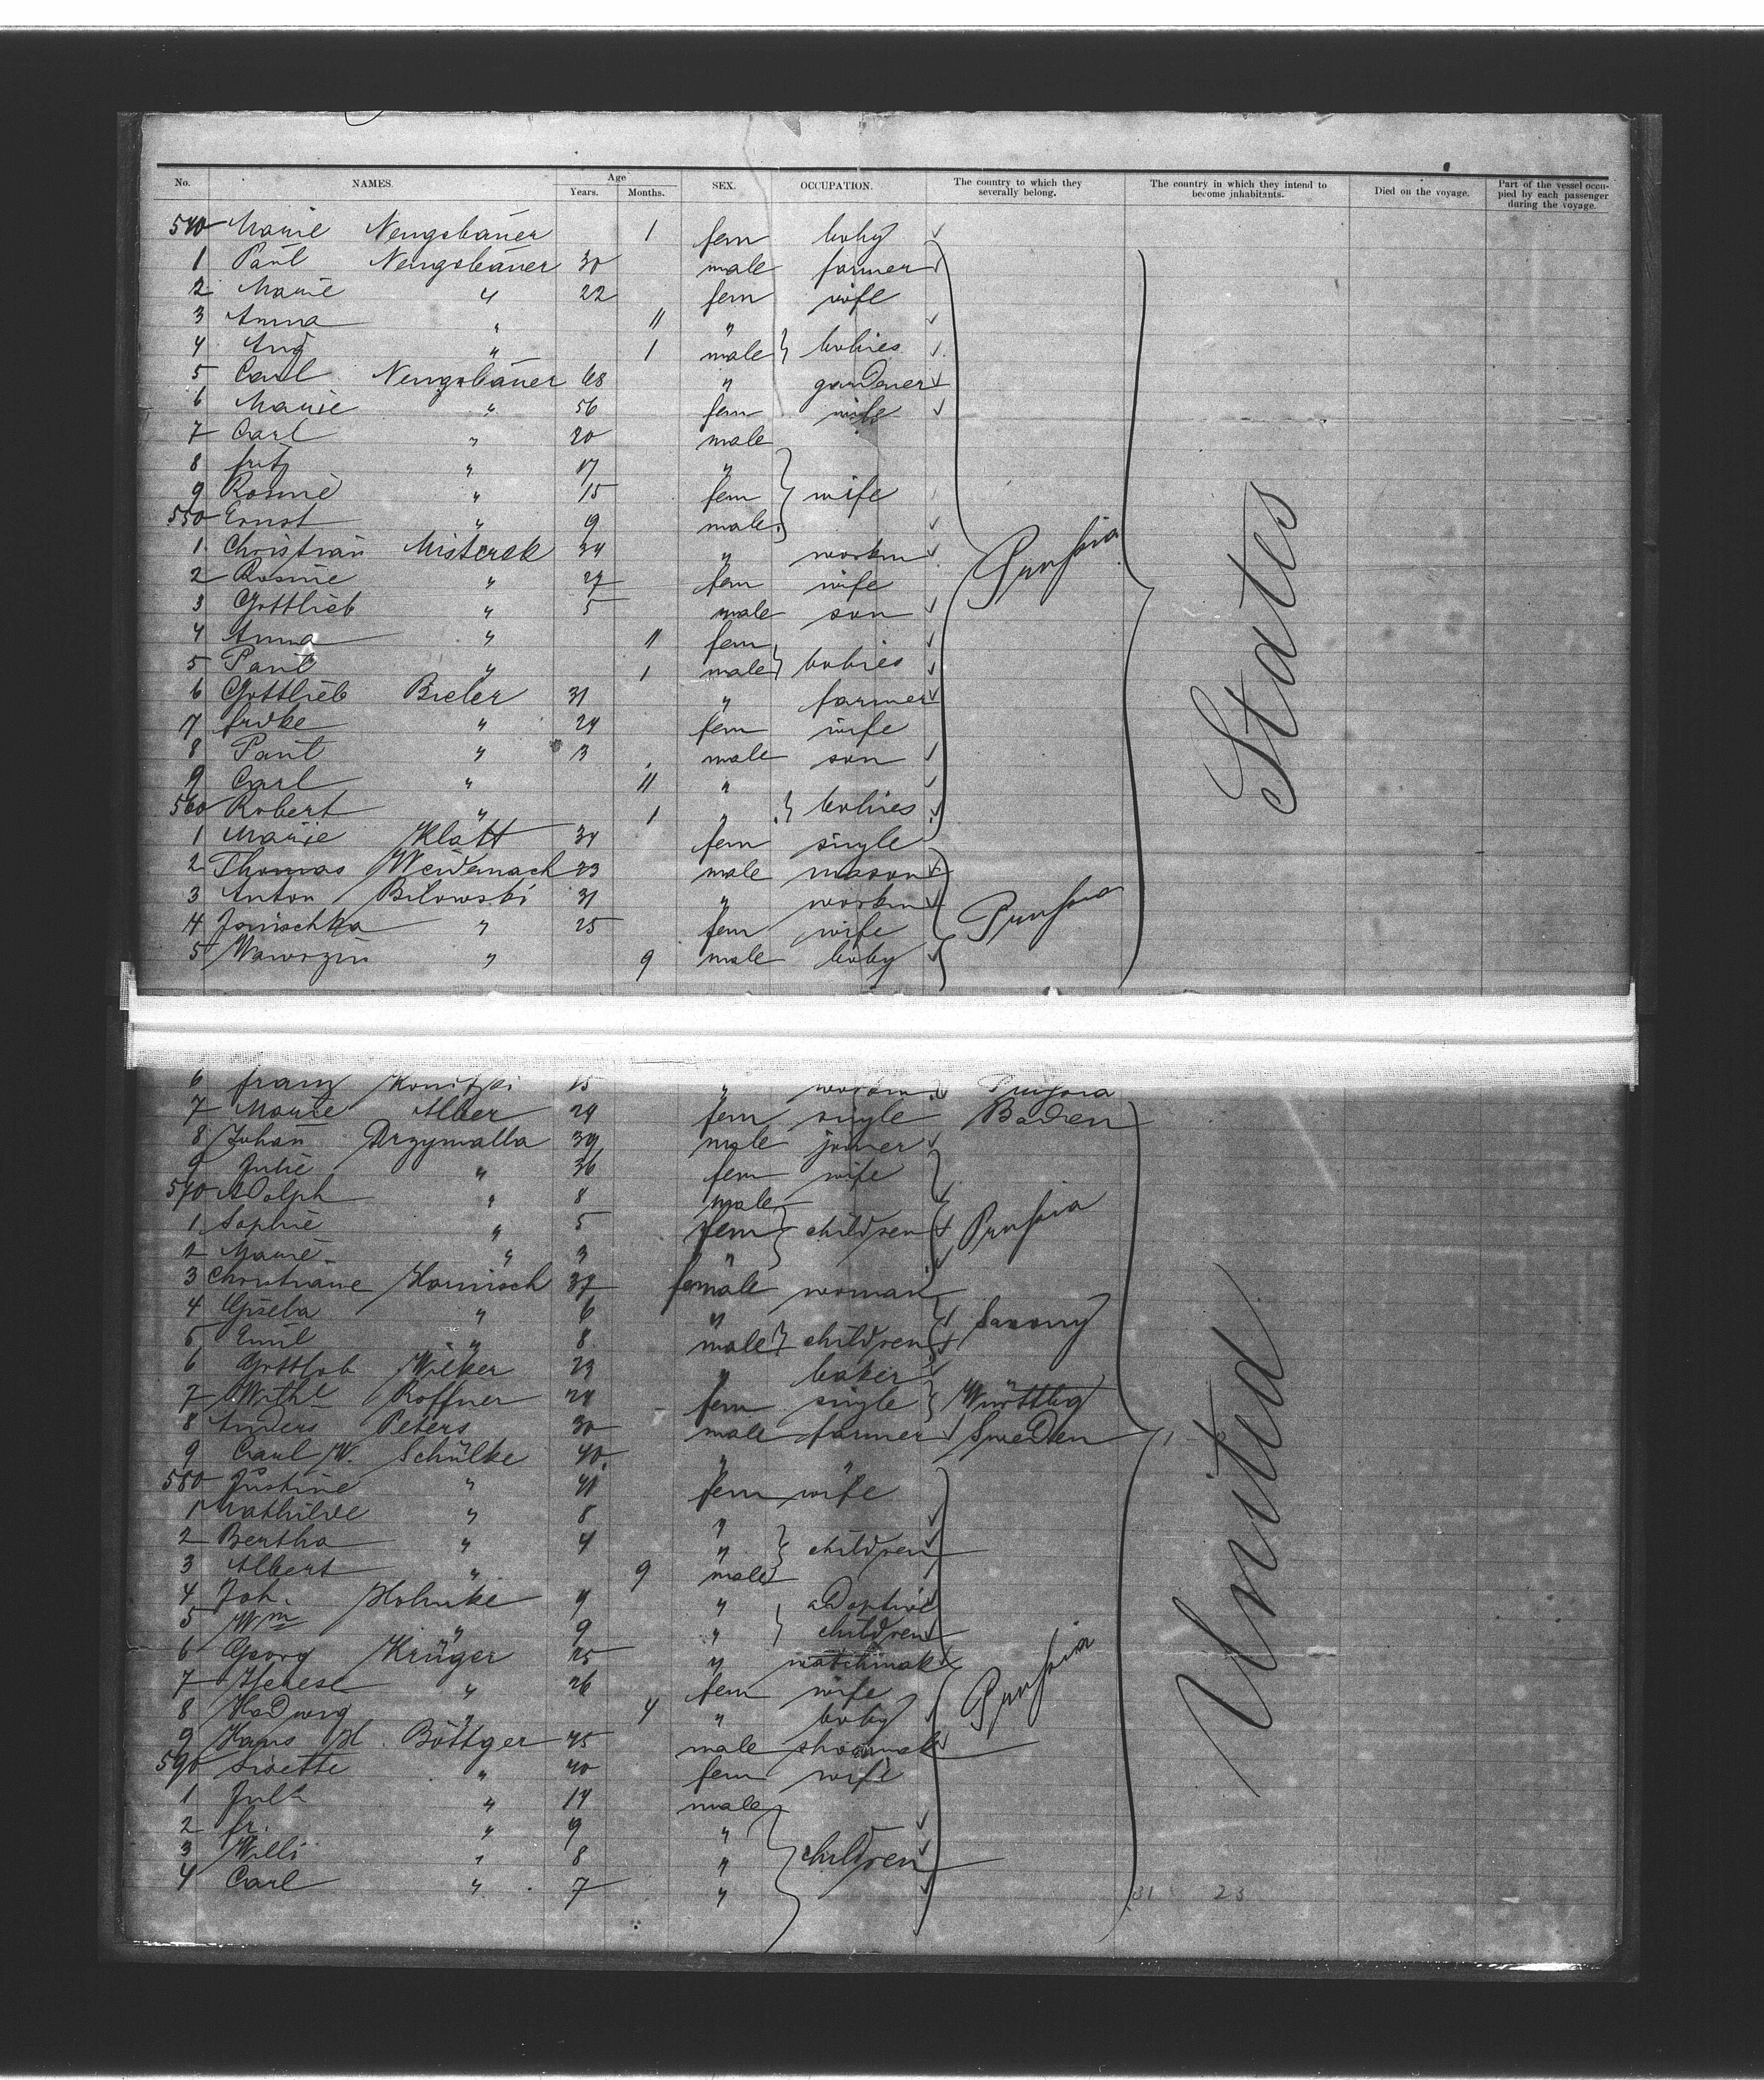 No. NAMES. Age Years. Months. SEX. OCCUPATION. The country to which they severally belong. The country in which they intend to become inhabitants. Died on the voyage. Part of the vessel occupied by each passenger during the voyage.
540 Marie Neugebauer 1 fem baby
1 Paul Neugebauer 30 male farmer
2 Marie " 22 fem wife
3 Anna " 11 "
4 Aug " 1 male babies
5 Carl Neugebauer 68 " gardener
6 Marie " 56 fem wife
7 Carl " 20 male
8 fritz " 17 "
9 Rosine " 15 fem wife
550 Ernst " 9 male
1 Christian Misterek 34 " workm Prussia
2 Rosine " 27 fem wife
3 Gottlieb " 5 male son
4 Anna " 11 fem
5 Paul " 1 male babies
6 Gottlieb Bieler 31 " farmer
7 frdke " 24 fem wife
8 Paul " 3 male son
9 Carl " 11 "
560 Robert " 1 " babies
1 Marie Klatt 34 fem single
2 Thomas Weidemach 23 male mason
3 Anton Bilowski 31 " workm Prussia
4 " 25 fem wife
5 Wawrzin " 9 male baby
States
6 franz Konitzki 15 " workm Prussia
7 Marie Alber 24 fem single Baden
8 Johan Drzymalla 39 male joiner
9 Julie " 36 fem wife
570 Adolph " 8 male
1 Sophie " 5 fem children Prussia
2 Marie " 3 "
3 Christiane Harnisch 37 female woman
4 Giseba " 6 " Saxony
5 Emil " 8 male children
6 Gottlob Wilker 23 " baker
7 Wilhe Roffner 24 fem single Württbg
8 Anders Peters 30 male farmer Sweden
9 Carl W. Schülke 40 " "
580 Justine " 41 fem wife
1 Mathilde " 8 "
2 Bertha " 4 " children
3 Albert " 9 male
4 Joh. Hohnke 9 " adoptive
5 Wm " 9 " children
6 Georg Krüger 25 " watchmak
7 Therese " 26 fem wife Prussia
8 Hedwig " 4 " baby
9 Hans H. Böttger 45 male shoemak
590 Lisette " 40 fem wife
1 Juls " 14 male
2 fr. " 9 "
3 Willi " 8 " children
4 Carl " 7 "
United
31 23